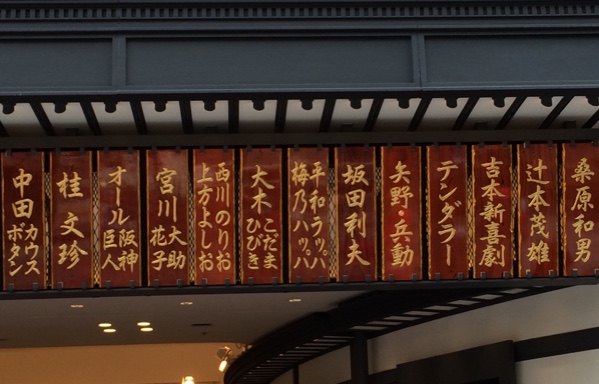 桑原和男
辻本茂雄
吉本新喜劇
テンダラー
矢野・兵動
坂田利夫
平和ラッパ
梅乃ハッパ
大木こだま
ひびき
西川のりお
上方よしお
宮川大助
花子
オール阪神
巨人
桂文珍
中田カウス
ボタン